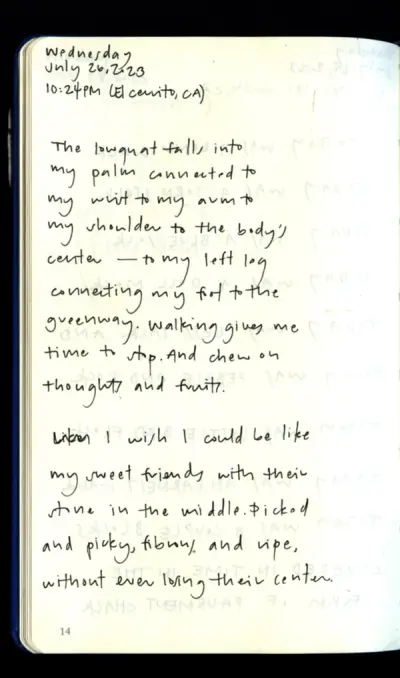 Wednesday
July 26, 2023
10:24PM (El cerrito, CA)
The lowquat falls into
my palm connected to
my wrist to my arm to
my shoulder to the body's
center — to my left leg
connecting my foot to the
greenway. Walking gives me
time to stop. And chew on
thoughts and fruits.
I wish I could be like
my sweet friends with their
stone in the middle. Picked
and picky, fibrous, and ripe,
without ever losing their center.
14